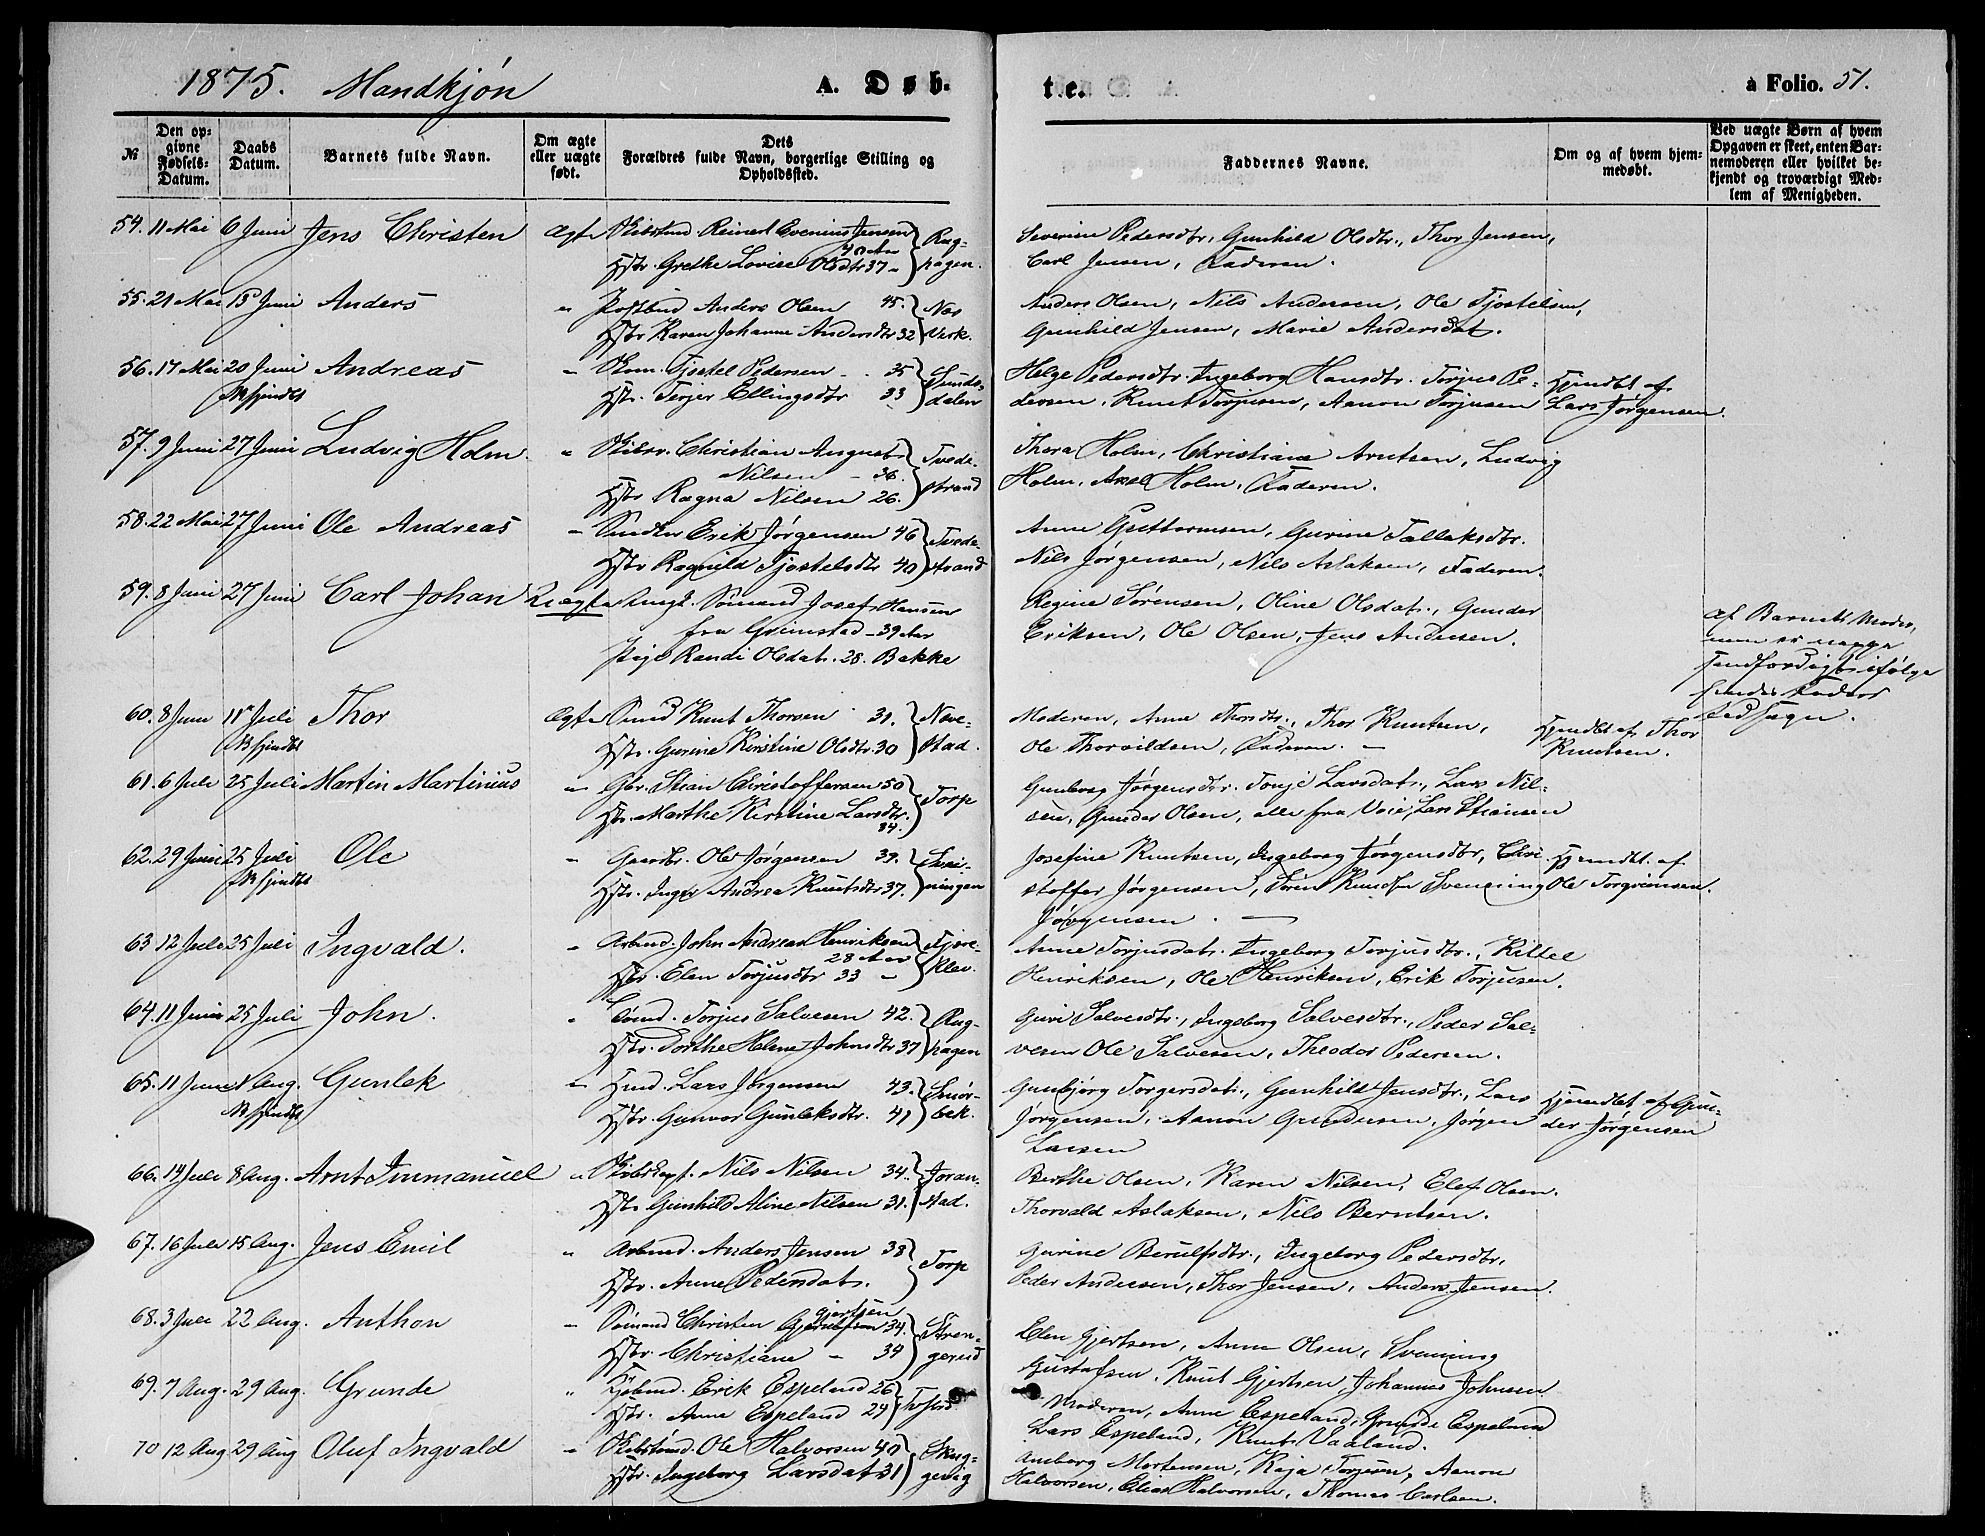 1875. Mandkjøn A. Døb-
te. a Folio. 51.
№ Den op-
givne
Fødsels-
Datum.
Daabs
Datum.
Barnets fulde Navn.
Om ægte
eller uægte
født.
Dets
Forældres fulde Navn, borgerlige Stilling og
Opholdssted.
Faddernes Navne.
Om og af hvem hjem-
medøbt.
Ved uægte Børn af hvem
Opgaven er skeet, enten Bar-
nemoderen eller hvilket be-
kjendt og troværdigt Med-
lem af Menigheden.
54. 11 Mai 6 Juni Jens Christen Ægte Reinert Evenius Jensen
40 Aar
Hstr. Grethe Lovise Olsdtr 37 Rug-
hagen.
Severine Pedersdtr, Gunhild Olsdtr., Thor Jensen,
Carl Jensen, Faderen.
55. 21 Mai 13 Juni Anders " Postbud Anders Olsen 45. Næs
Hstr Karen Johanne Andersdtr 32 Verk.
Anders Olsen, Nils Andersen, Ole Tjostelsen,
Gunhild Jensen, Marie Andersdat.
56. 17 Mai 20 Juni Andreas " Tjostel Pedersen 35 Sunds-
Hstr. Terjer Ellingsdtr 33 dalen
Helge Pedersdtr. Ingeborg Hansdtr. Torjus Pe-
dersen. Knut Torjusen, Aanon Torjusen
Hjemdbt. af
Lars Jørgensen.
57. 9 Juni 27 Juni Ludvig Holm " Skibsr. Christian August Tvede-
Nilsen - 36.
Hstr Ragna Nilsen 26. strand
Thora Holm, Christiane Arntsen, Ludvig
Holm, Axel Holm, Faderen.
58. 22 Mai 27 Juni Ole Andreas " Erik Jørgensen 46 Tvede-
Hstr Ragnild Tjostelsdtr 40 strand
Anne Guttormsen, Gurine Tallaksdtr.
Nils Jørgensen, Nils Aslaksen, Faderen.
59. 8 Juni 27 Juni Carl Johan Uægte Ungk. Sømand Josef Hansen
fra Grimstad - 39 Aar
Pige Randi Olsdat. 28. Bakke
Regine Sørensen, Oline Olsdat., Gunder
Eriksen, Ole Olsen, Jens Andersen.
af Barnets Moder,
60. 8 Juni 11 Juli Thor Ægte Smed Knut Thorsen 31. Næve-
Hstr. Gurine Kirstine Olsdtr. 30 stad.
Moderen, Anne Thorsdtr., Thor Knutsen,
Ole Thorvildsen, Faderen.
Hjemdbt. af Thor
Knutsen.
61. 6 Juli 25 Juli Martin Martinius " Gbr. Stian Christoffersen 50
Hstr. Marthe Kirstine Larsdtr.
34. Torp
Gunborg Jørgensdtr. Tonje Larsdat., Lars Nil-
sen, Gunder Olsen, alle fra Voie, Lars Stiansen
62. 29 Juni 25 Juli Ole " Gaardbr. Ole Jørgensen 39.
Hstr. Inger Andrea Knutsdtr 37.
Josefine Knutsen, Ingeborg Jørgensdtr, Chri-
stoffer Jørgensen, Søren Knudsen Svenning
Jørgensen.
Hjemdbt. af
Ole Torgrimsen.
63 12 Juli 25 Juli Ingvald. " Arbmd. John Andreas Henriksen Fjære-
28 Aar
Hstr. Elen Torjusdtr 33 " klev.
Anne Torjusdat. Ingeborg Torjusdtr., Kittel
Henriksen, Ole Henriksen, Erik Torjusen.
64. 11 Juni 25 Juli John. " Torjus Salvesen 42. Rug-
Hstr. Dorthe Helene Johnsdtr 37 hagen
Guri Salvesdtr., Ingeborg Salvesdtr., Peder Sal-
vesen Ole Salvesen, Theodor Pedersen.
65. 11 Juni 1 Aug. Gunlek " Hmd. Lars Jørgensen 43. Smør-
Hstr. Gunvor Gunleksdtr. 41 bek.
Gunbjørg Torgersdat., Gunhild Jensdtr., Lars
Jørgensen, Aanon Gundersen, Jørgen
Larsen
Hjemdbt. af Gun-
der Jørgensen
66. 14 Juli 8 Aug. Arnt Immanuel " Skibskapt. Nils Nilsen 34. Joran-
Hstr. Gunhild Aline Nilsen 31. stad.
Berthe Olsen, Karen Nilsen, Elef Olsen.
Thorvald Aslaksen, Nils Berntsen.
67. 16 Juli 15 Aug. Jens Emil " Arbmd. Anders Jensen 38
Hstr. Anne Pedersdat. Torp
Gurine Berulfsdtr., Ingeborg Pedersdtr,
Peder Andersen, Thor Jensen, Anders Jensen.
68. 3 Juli 22 Aug. Anthon " Sømand Christen Gjertsen 34. Stren-
Hstr. Christiane - 34 gereid
Elen Gjertsen, Anne Olsen, Svenning
Gustafsen, Knut Gjertsen, Johannes Johnsen.
69. 7 Aug. 29 Aug. Grunde " Erik Espeland 26
Hstr. Anne Espeland 24
Moderen, Anne Espeland, Grunde Espeland
Lars Espeland, Knut Vaaland.
70 12 Aug 29 Aug Oluf Ingvald " Ole Halvorsen 40 Skug-
Hstr. Ingeborg Larsdat 31 gevig
Anborg Mortensen, Kaja Torjusen, Aanon
Halvorsen, Elias Halvorsen, Thomas Carlsen.